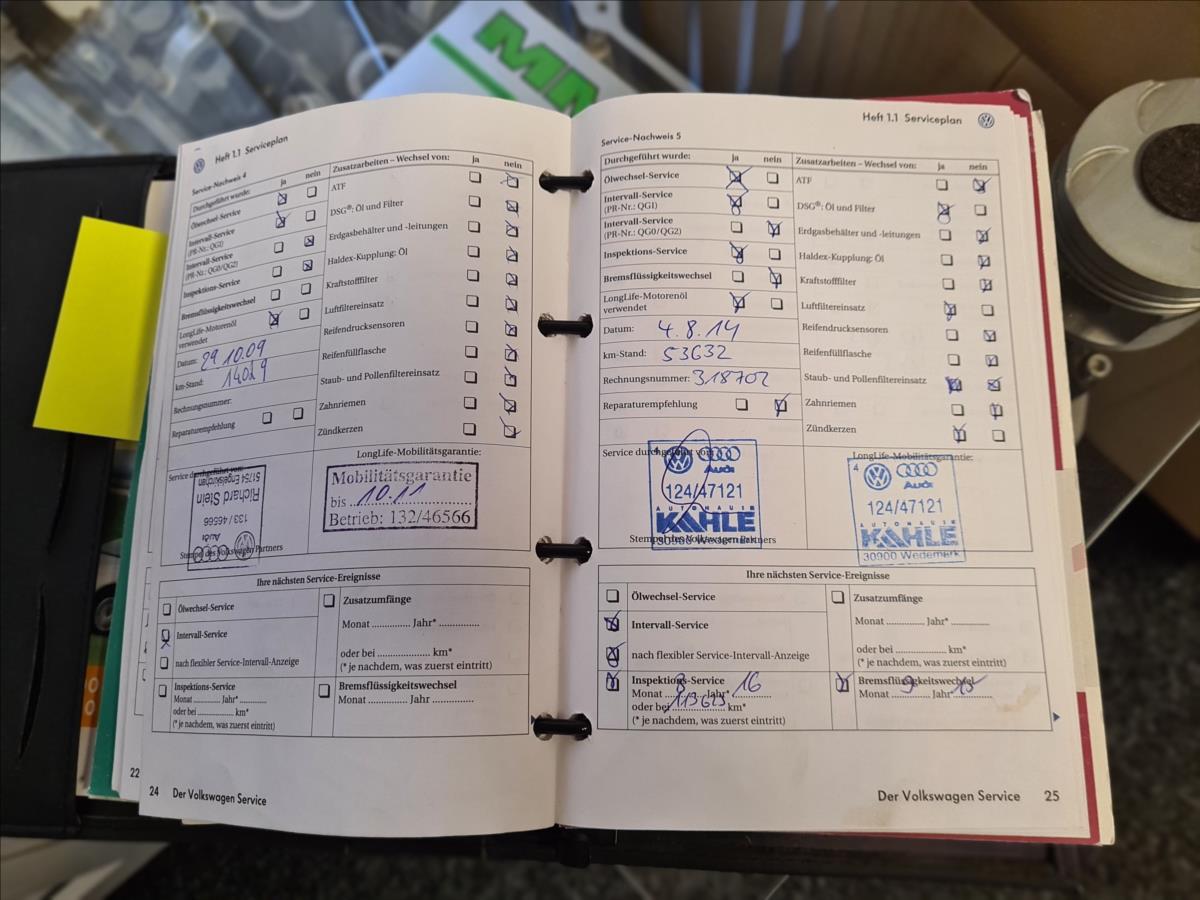 MM
Heft 1.1 Serviceplan
Service-Nachweis 4
Durchgeführt wurde: ja nein
Ölwechsel-Service
Intervall-Service
(PR-Nr.: QG1)
Intervall-Service
(PR-Nr.: QG0/QG2)
Inspektions-Service
Bremsflüssigkeitswechsel
LongLife-Motorenöl
verwendet
Datum: 29.10.09
km-Stand: 14029
Rechnungsnummer:
Reparaturempfehlung
Zusatzarbeiten – Wechsel von: ja nein
ATF
DSG®: Öl und Filter
Erdgasbehälter und -leitungen
Haldex-Kupplung: Öl
Kraftstofffilter
Luftfiltereinsatz
Reifendrucksensoren
Reifenfüllflasche
Staub- und Pollenfiltereinsatz
Zahnriemen
Zündkerzen
Service durchgeführt von:
51754 Engelskirchen
Richard Stein
133 / 46566
Audi
Stempel des Volkswagen Partners
LongLife-Mobilitätsgarantie:
Mobilitätsgarantie
bis 10.11
Betrieb: 132/46566
Ihre nächsten Service-Ereignisse
Ölwechsel-Service
Intervall-Service
nach flexibler Service-Intervall-Anzeige
Inspektions-Service
Monat ............ Jahr* ............
oder bei .................... km*
(* je nachdem, was zuerst eintritt)
Zusatzumfänge
Monat ............ Jahr* ............
oder bei .................... km*
(* je nachdem, was zuerst eintritt)
Bremsflüssigkeitswechsel
Monat ............ Jahr ............
22
24 Der Volkswagen Service
Heft 1.1 Serviceplan
Service-Nachweis 5
Durchgeführt wurde: ja nein
Ölwechsel-Service
Intervall-Service
(PR-Nr.: QG1)
Intervall-Service
(PR-Nr.: QG0/QG2)
Inspektions-Service
Bremsflüssigkeitswechsel
LongLife-Motorenöl
verwendet
Datum: 4.8.14
km-Stand: 53632
Rechnungsnummer: 318702
Reparaturempfehlung
Zusatzarbeiten – Wechsel von: ja nein
ATF
DSG®: Öl und Filter
Erdgasbehälter und -leitungen
Haldex-Kupplung: Öl
Kraftstofffilter
Luftfiltereinsatz
Reifendrucksensoren
Reifenfüllflasche
Staub- und Pollenfiltereinsatz
Zahnriemen
Zündkerzen
Service durchgeführt von:
Audi
124/47121
AUTOHAUS
KAHLE
30900 Wedemark
Stempel des Volkswagen Partners
LongLife-Mobilitätsgarantie:
4
Audi
124/47121
AUTOHAUS
KAHLE
30900 Wedemark
Ihre nächsten Service-Ereignisse
Ölwechsel-Service
Intervall-Service
nach flexibler Service-Intervall-Anzeige
Inspektions-Service
Monat 8 Jahr* 16
oder bei 113623 km*
(* je nachdem, was zuerst eintritt)
Zusatzumfänge
Monat ............ Jahr* ............
oder bei .................... km*
(* je nachdem, was zuerst eintritt)
Bremsflüssigkeitswechsel
Monat 9 Jahr 15
Der Volkswagen Service 25